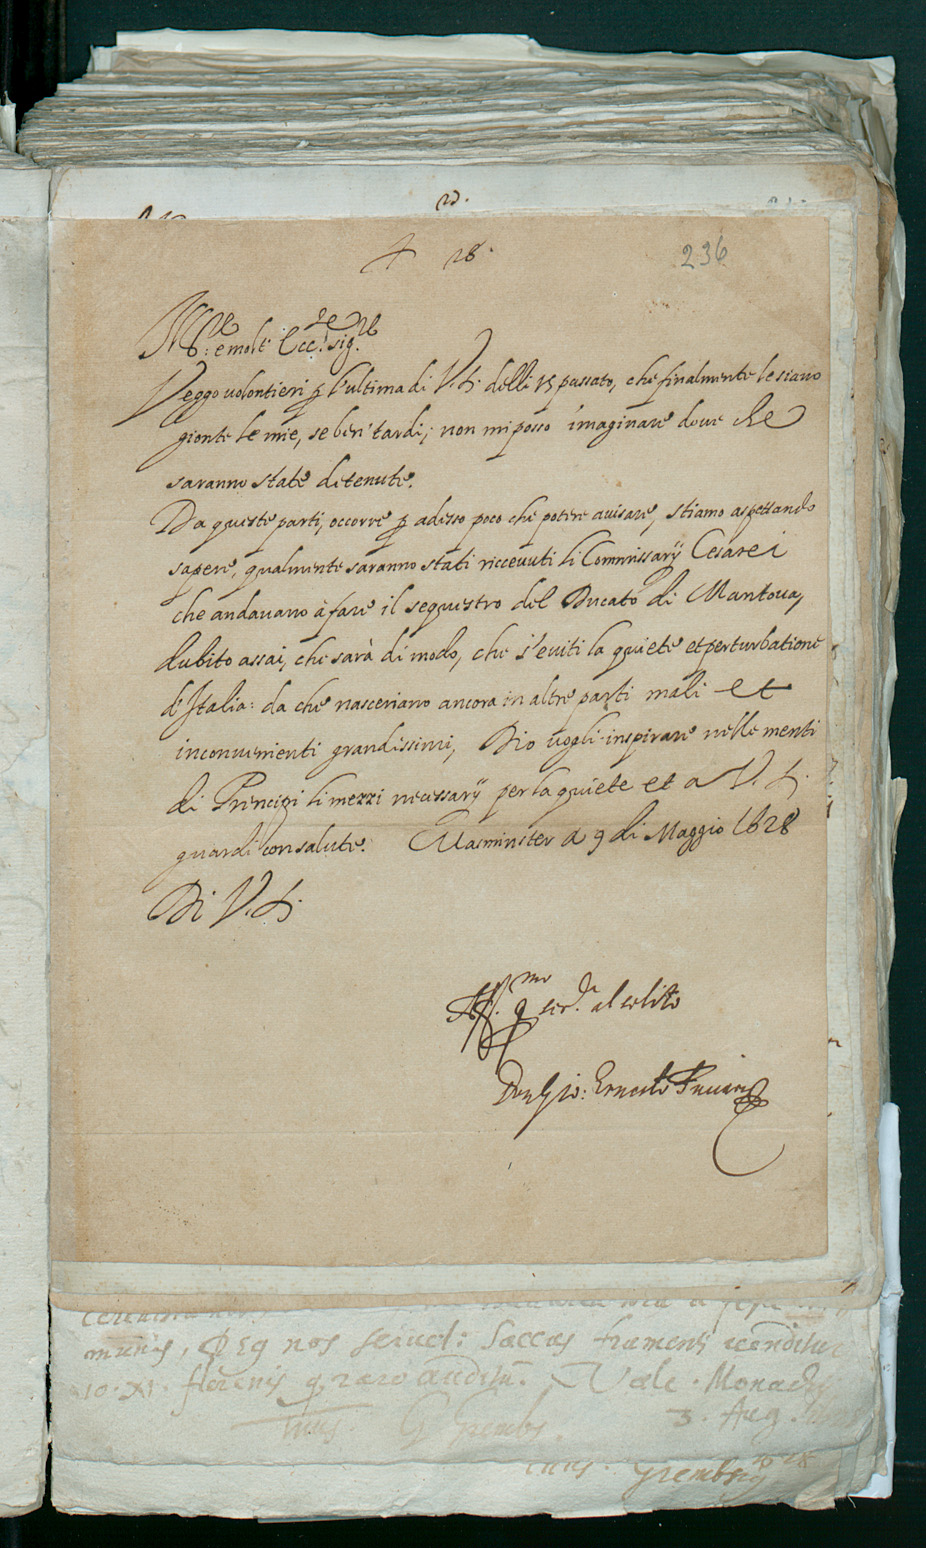 23.
+ 28.
236
Ill.re e molt' Ecc.te Sig.re
Veggo volontieri p l'ultima di V.S. delli 15 passato, che finalmente le siano
gionte le mie, se ben' tardi; non mi posso imaginare dove che
saranno state detenute.
Da queste parti, occorre p adesso poco che potere avisare, stiamo aspettando
sapere, qualmente saranno stati riccevuti li Commissarij Cesarei
che andavano à fare il sequestro del Ducato di Mantova,
dubito assai, che sarà di modo, che s'eviti la quiete et perturbatione
d'Italia: da che nasceriano ancora in altre parti mali et
inconvenienti grandissimi, Dio vogli inspirare nelle menti
di Principi li mezzi necessarij per la quiete et a V.S.
guardi con salute. Wasminster a 9 di Maggio 1628
Di V.S.
Aff.mo p ser.r al solito
Don Gio: Ernesto
nos Saccus frumenti venditur
10. XI. florenis q raro auditum. Vale. Monachij
3. Aug.